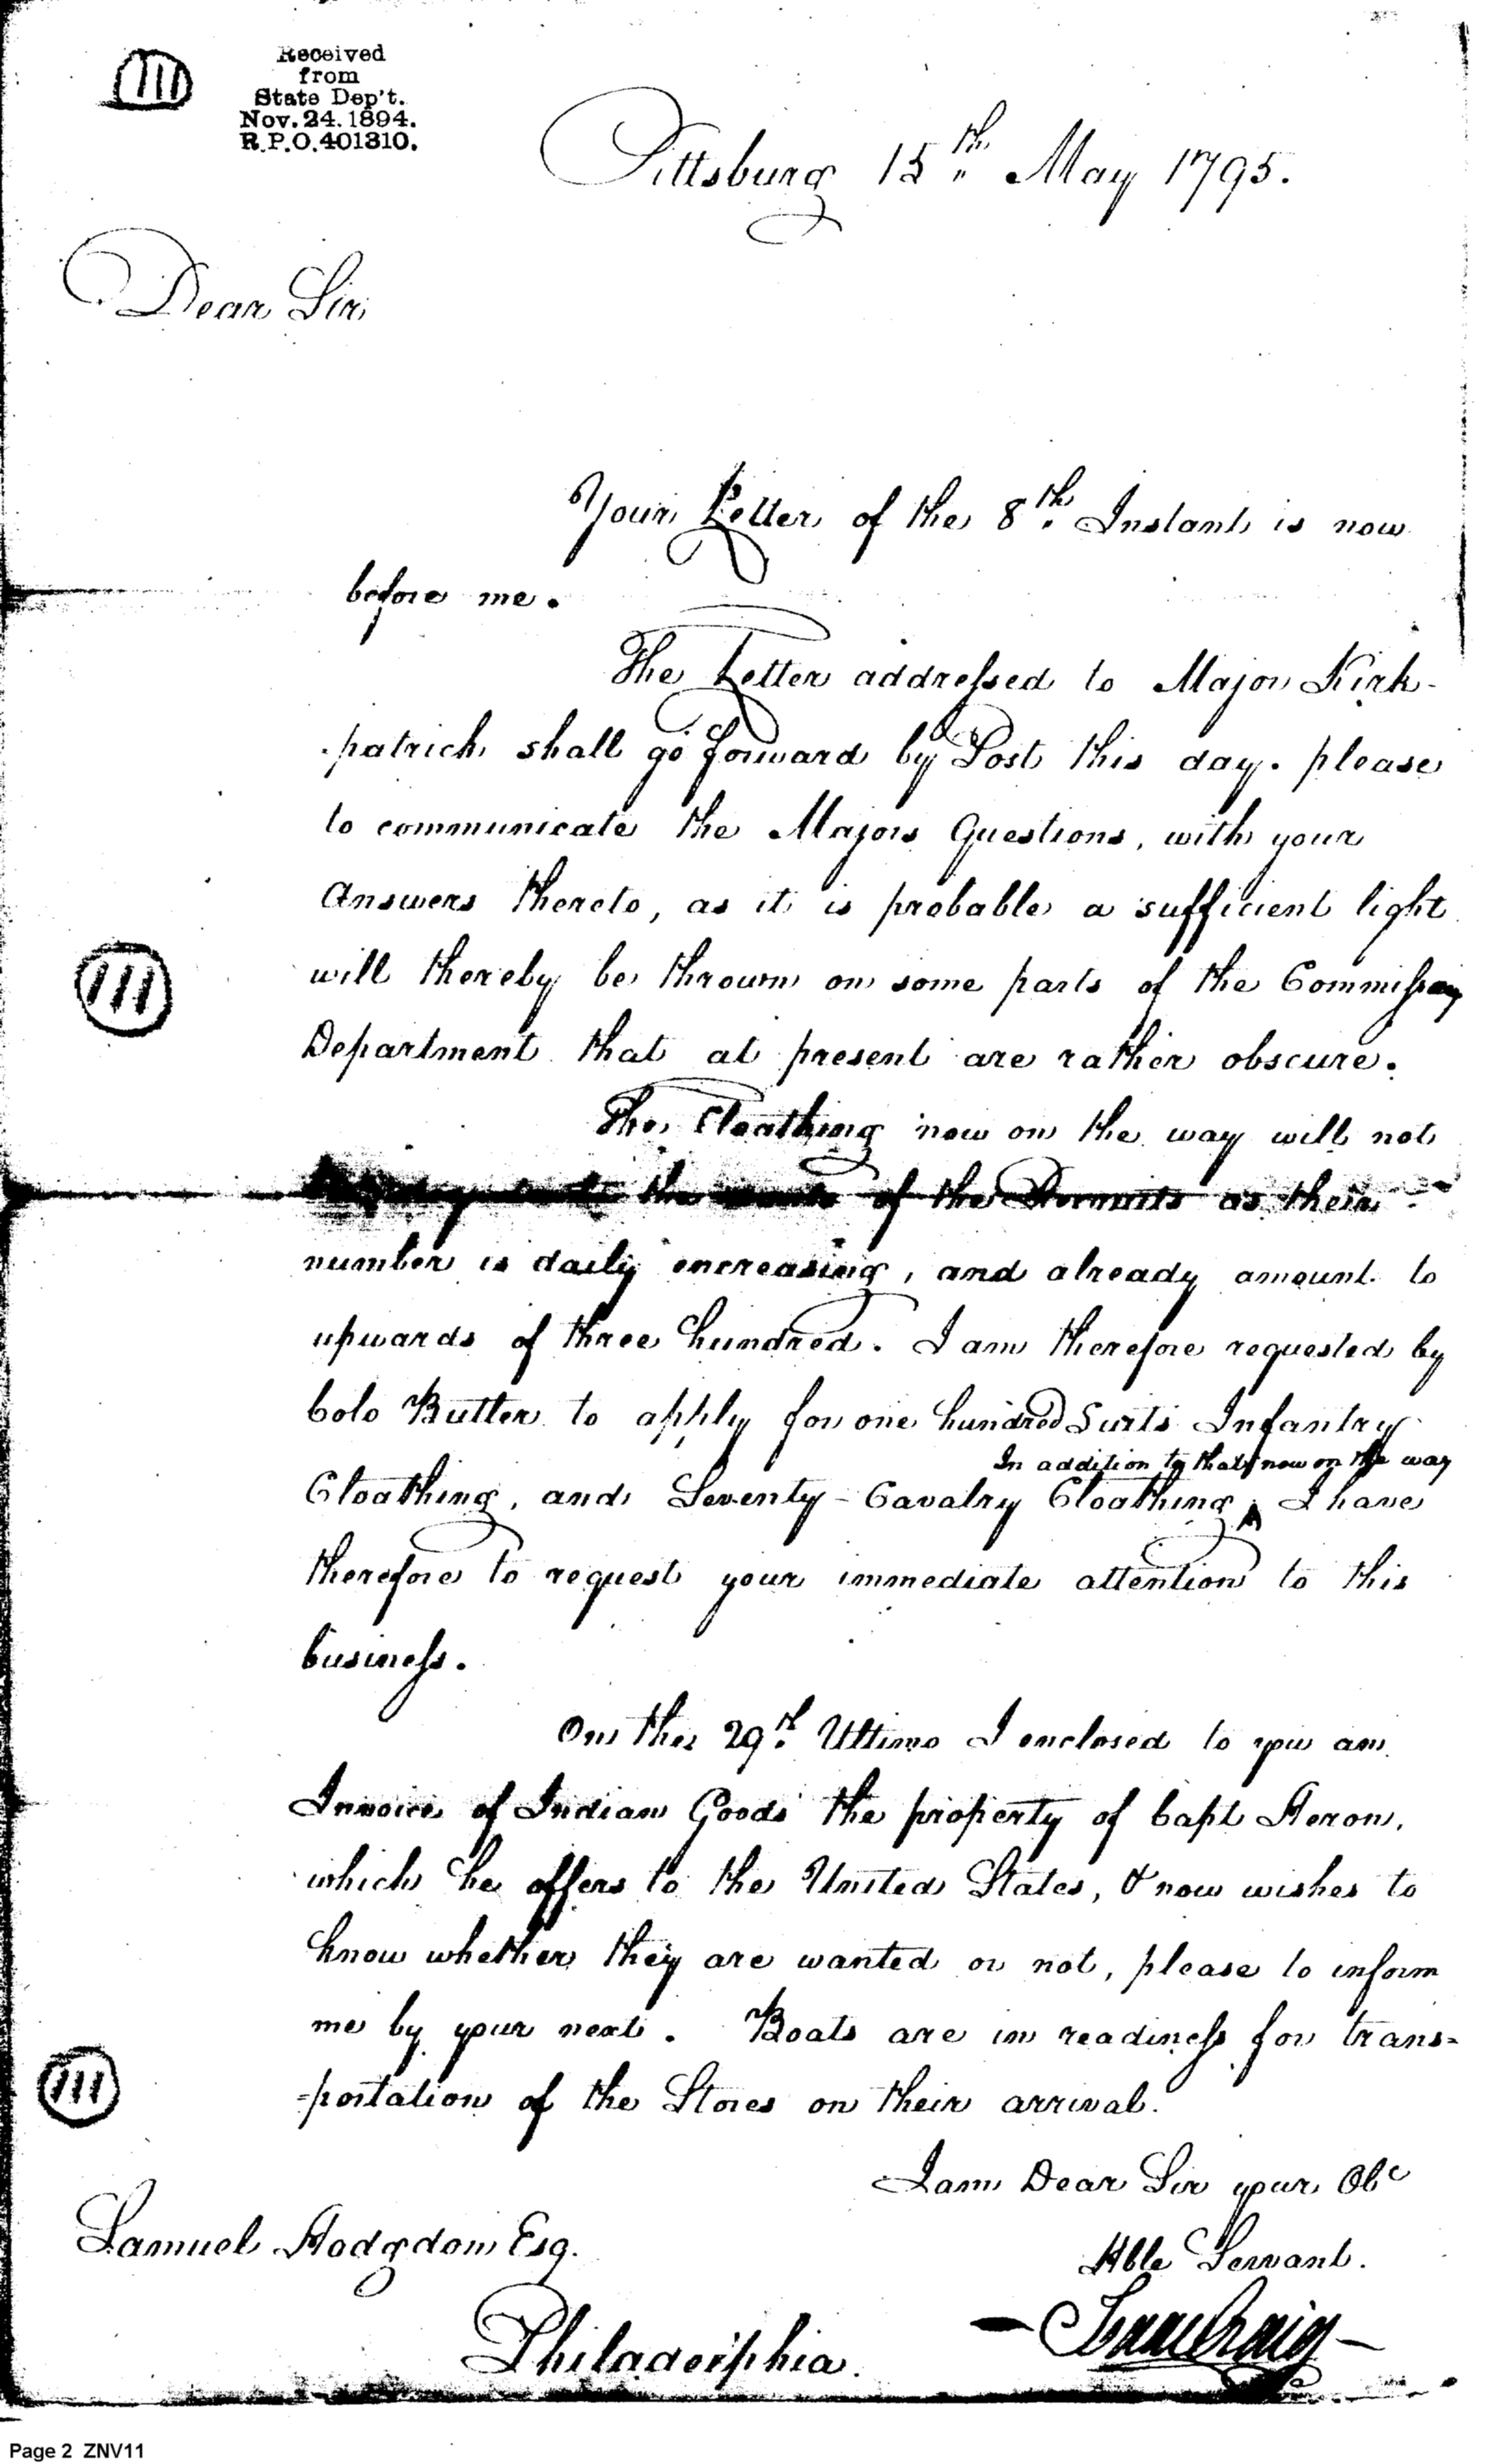 III
Received
from
State Dep't.
Nov. 24. 1894.
R.P.O. 401310.
Pittsburg 15th May 1795.
Dear Sir
Your Letter of the 8th Instant is now
before me.
The Letter addressed to Major Kirk-
patrick shall go forward by Post this day. please
to communicate the Majors Questions, with your
Answers thereto, as it is probable a sufficient light
will thereby be thrown on some parts of the Commissary
III
Department that at present are rather obscure.
The Cloathing now on the way will not
the wants of the Recruits as their
number is daily encreasing, and already amount to
upwards of three hundred. I am therefore requested by
Colo Butler to apply for one hundred Suits Infantry
In addition to that now on the way
Cloathing, and Seventy-Cavalry Cloathing, I have
therefore to request your immediate attention to this
business.
On the 29th Ultimo I enclosed to you an
Invoice of Indian Goods the property of Capt Heron,
which he offers to the United States, & now wishes to
know whether they are wanted or not, please to inform
me by your next. Boats are in readiness for trans=
III
=portation of the Stores on their arrival.
I am Dear Sir your Obt
Hble Servant.
Samuel Hodgdon Esq.
Isaac Craig
Philadelphia.
Page 2 ZNV11